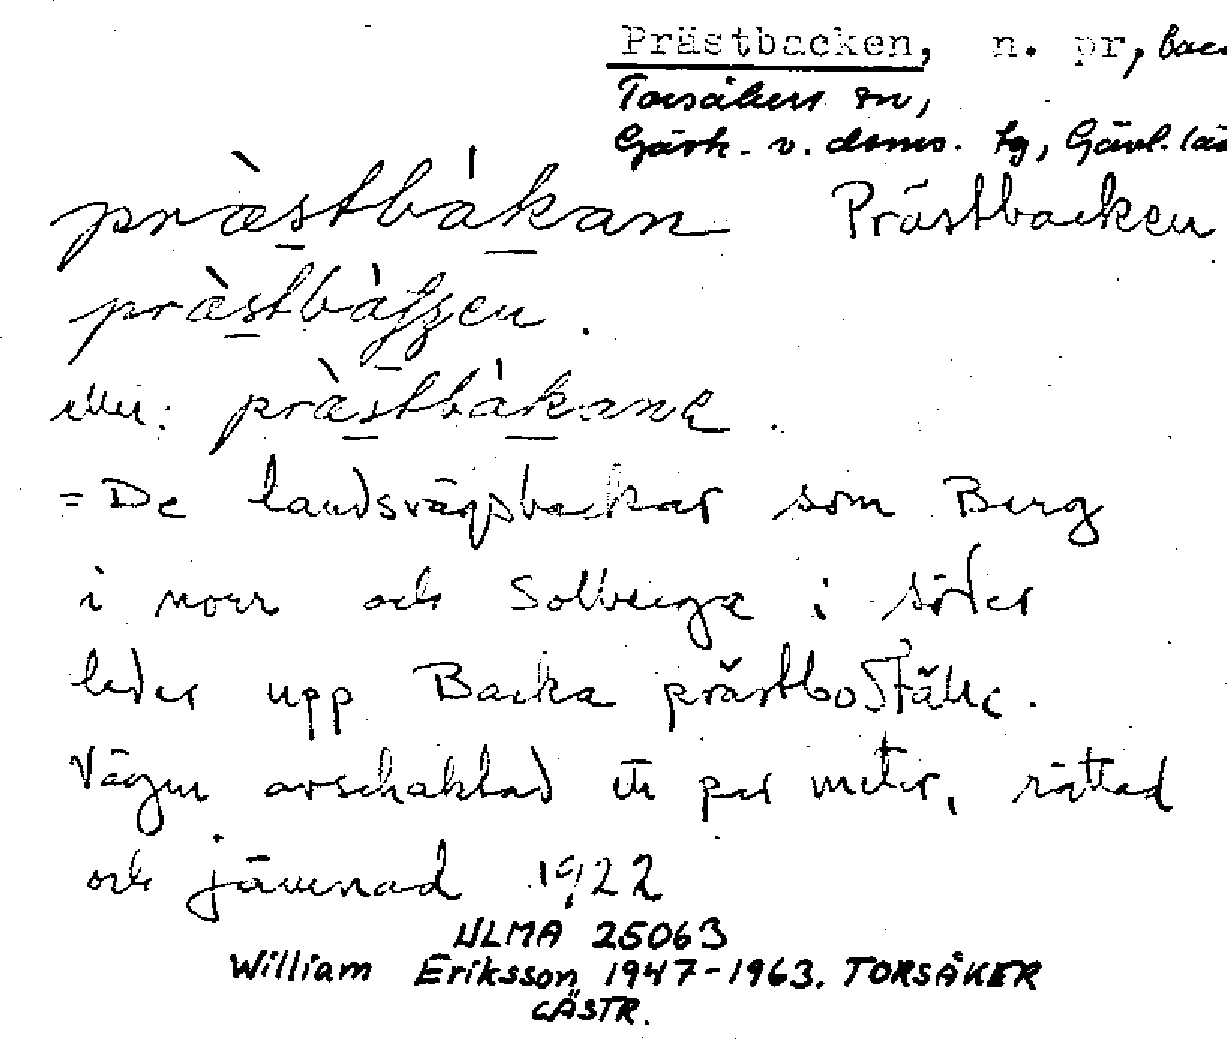 Prästbacken, n. pr, bac
Torsåkers sn,
Gästr. v. doms. tg, Gävl. lä
præ̀stbákan Prästbacken
eller: præ̀stbákane.
= De landsvägsbackar som Berg
i norr och Solberga i söder
leder upp Backa prästboställe.
Vägen avschaktad ett par meter, rättad
och jämnad 1922
ULMA 25063
William Eriksson 1947-1963. TORSÅKER
GÄSTR.